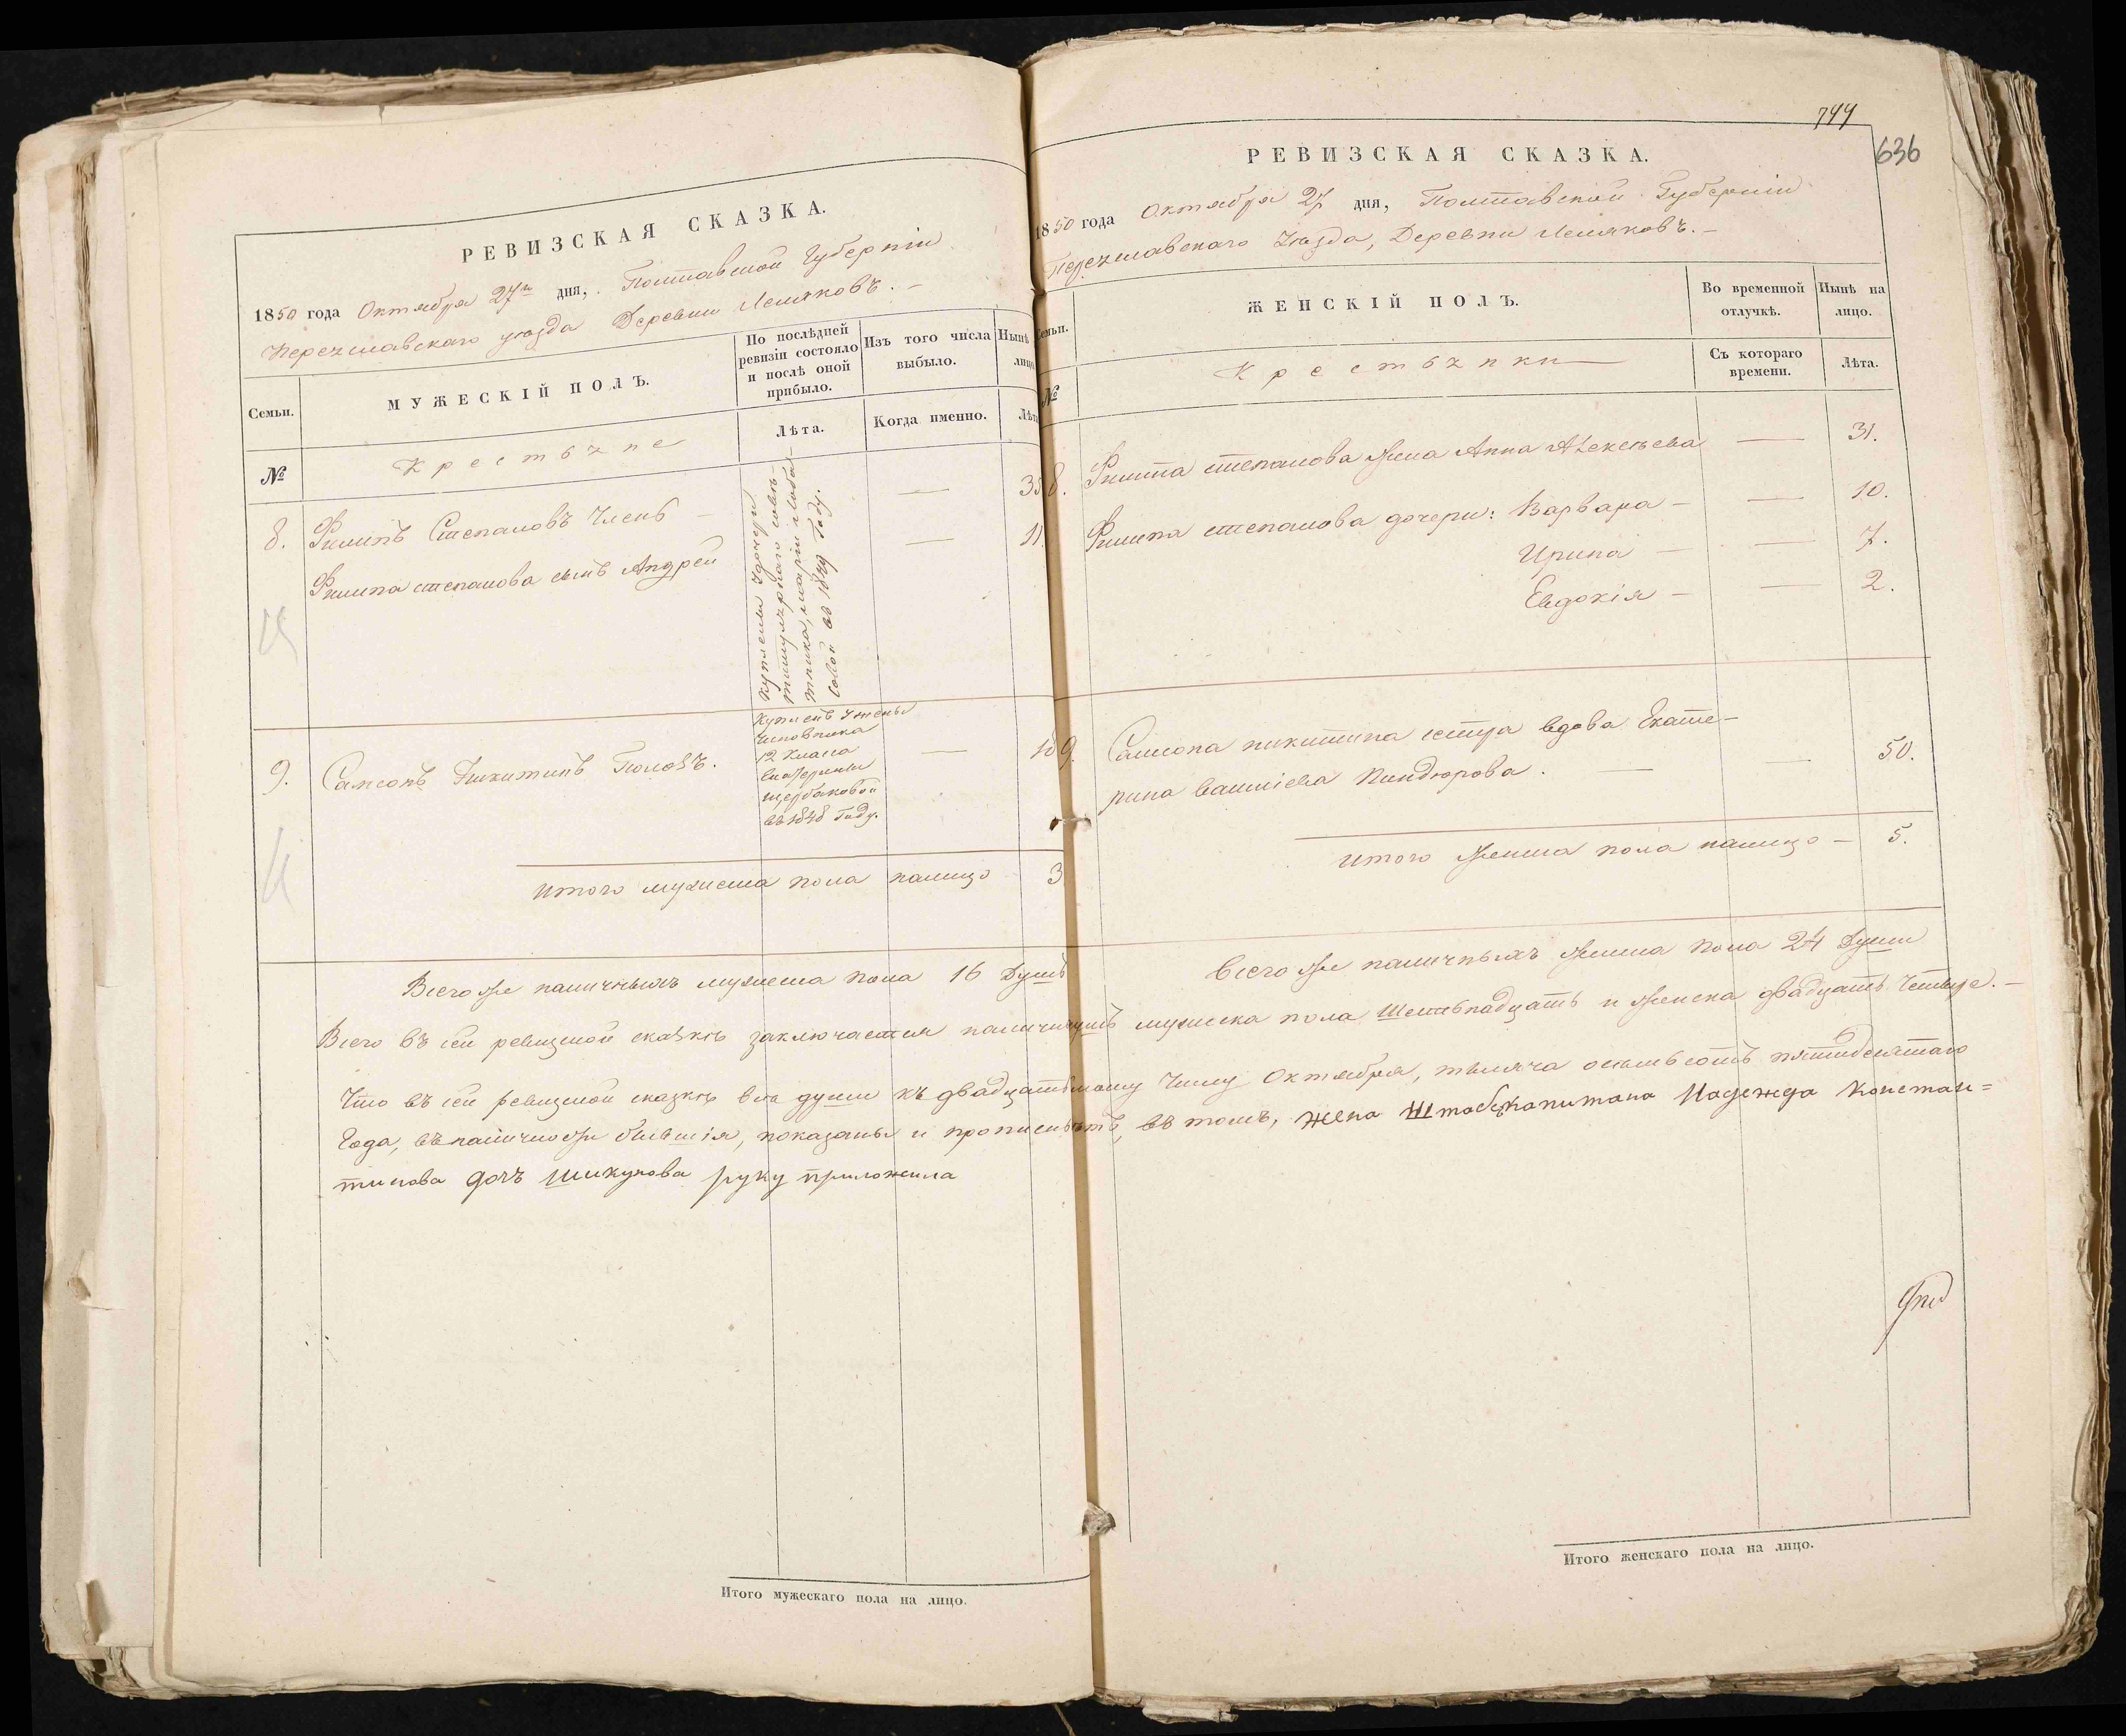 РЕВИЗСКАЯ СКАЗКА.
1850 года Октября 27го дня, Полтавской Губерніи
Переяславскаго уѣзда Деревни Лемяковъ. —
Семьи.
МУЖЕСКІЙ ПОЛЪ.
По послѣдней ревизіи состояло и послѣ оной прибыло.
Изъ того числа выбыло.
Нынѣ лицо
№
Крестьяне
Лѣта.
Когда именно.
Лѣта
8. Филипъ Степановъ Членъ —
Филипа степанова сынъ Андрей
11.
Куплены Удочери
титулярнаго совѣ-
тника, Маріи
совой въ 1849 Году.
9. Самсонъ Никитинъ Головъ.
Купленъ Ужены
чиновника
12 Класа
Екатерины
щербаковой
въ 1848 Году.
Итого мужеска пола налицо 3
Всего же наличныхъ мужеска пола 16 Душъ
Итого мужескаго пола на лицо.
744
636
РЕВИЗСКАЯ СКАЗКА.
1850 года Октября 27 дня, Полтавской Губерніи
Переяславскаго Уѣзда, Деревни Лемяковъ. —
Семьи.
ЖЕНСКІЙ ПОЛЪ.
Во временной отлучкѣ.
Нынѣ на лицо.
№
Крестьянки
Съ котораго времени.
Лѣта.
8. Филипа степанова жена Анна Алексѣева — 31.
Филипа степанова дочери: Варвара — 10.
Ирина — 7.
Евдокія — 2.
9. Самсона никитина сестра вдова Екате-
рина василіева . — 50.
Итого женска пола налицо — 5.
Всего же наличныхъ женска пола 24 Души
Всего въ сей ревизской сказкѣ заключается наличныхъ мужеска пола Шестьнадцать и женска двадцать Четыре. —
Что въ сей ревизской сказкѣ всѣ души къ двадцатьсемому Числу Октября, тысяча осьмьсотъ пятидесятаго
Года, въ наличности бывшія, показаны и прописныхъ нѣтъ, въ томъ, жена Штабскапитана Надежда Констан=
тинова дочъ Шикунова руку приложила
Итого женскаго пола на лицо.